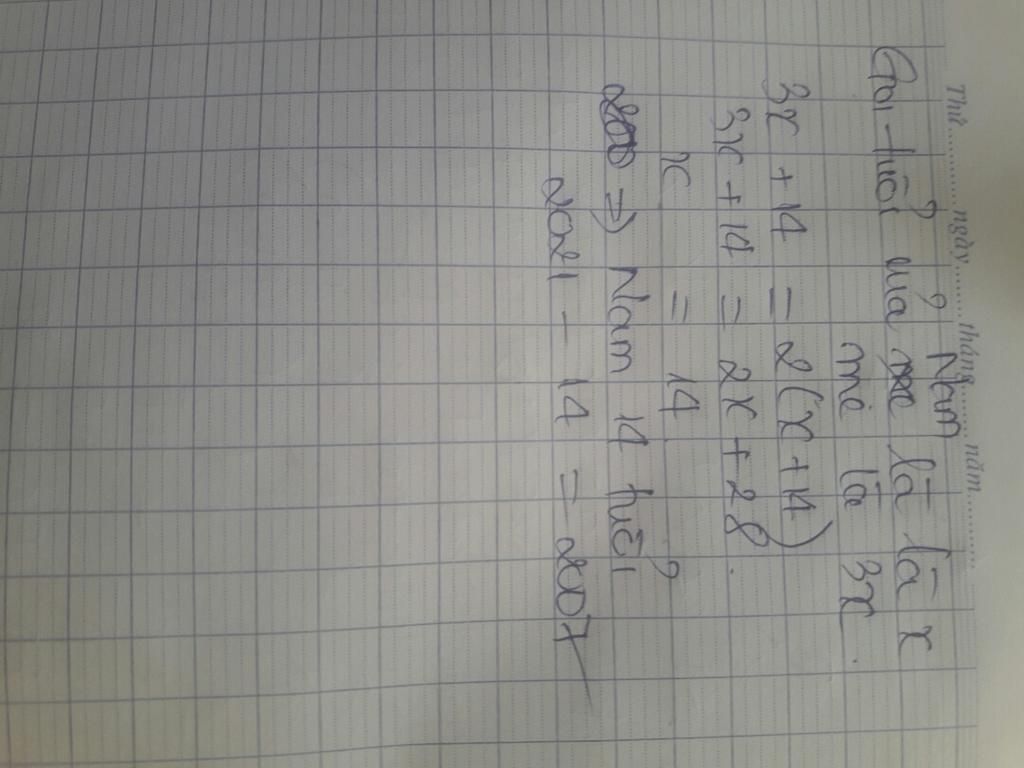 Thứ.......... ngày........ tháng........ năm..........
Nam
Gọi tuổi của là là x
mẹ là 3x.
3x + 14 = 2(x + 14)
3x + 14 = 2x + 28.
x = 14
=> Nam 14 tuổi
2021 - 14 = 2007